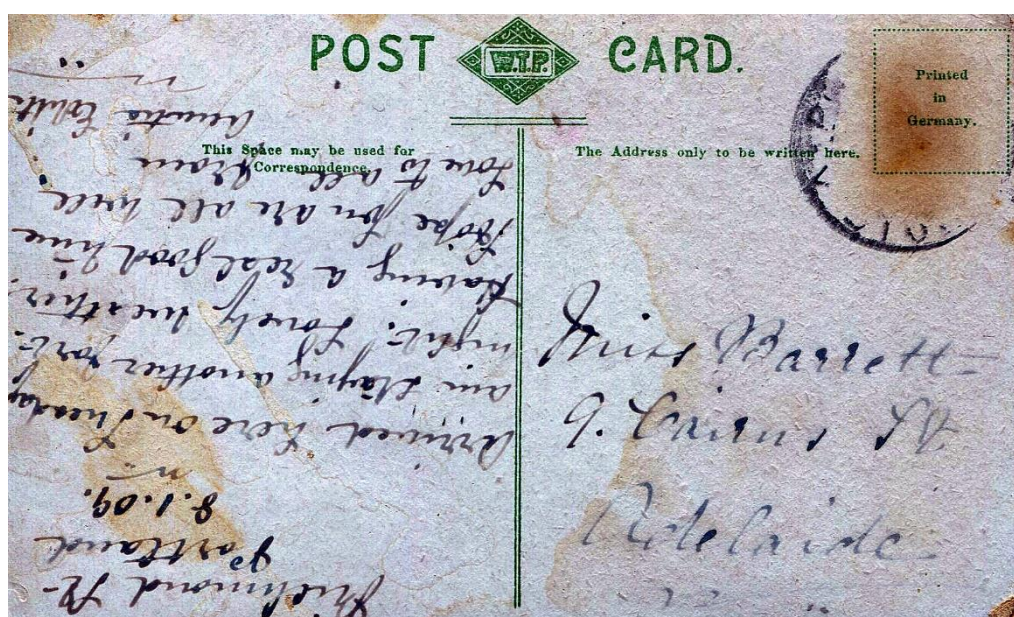 POST W.T.P. CARD.
Printed
in
Germany.
This Space may be used for
Correspondence.
The Address only to be written here.
Richmond St
Portland
8.1.09.
Arrived here on Tuesday
am staying another fort-
night. Lovely weather.
Having a real good time
Hope you are all well
Love to all from
Auntie Edith
Miss Barrett
9. Cairns St
Adelaide